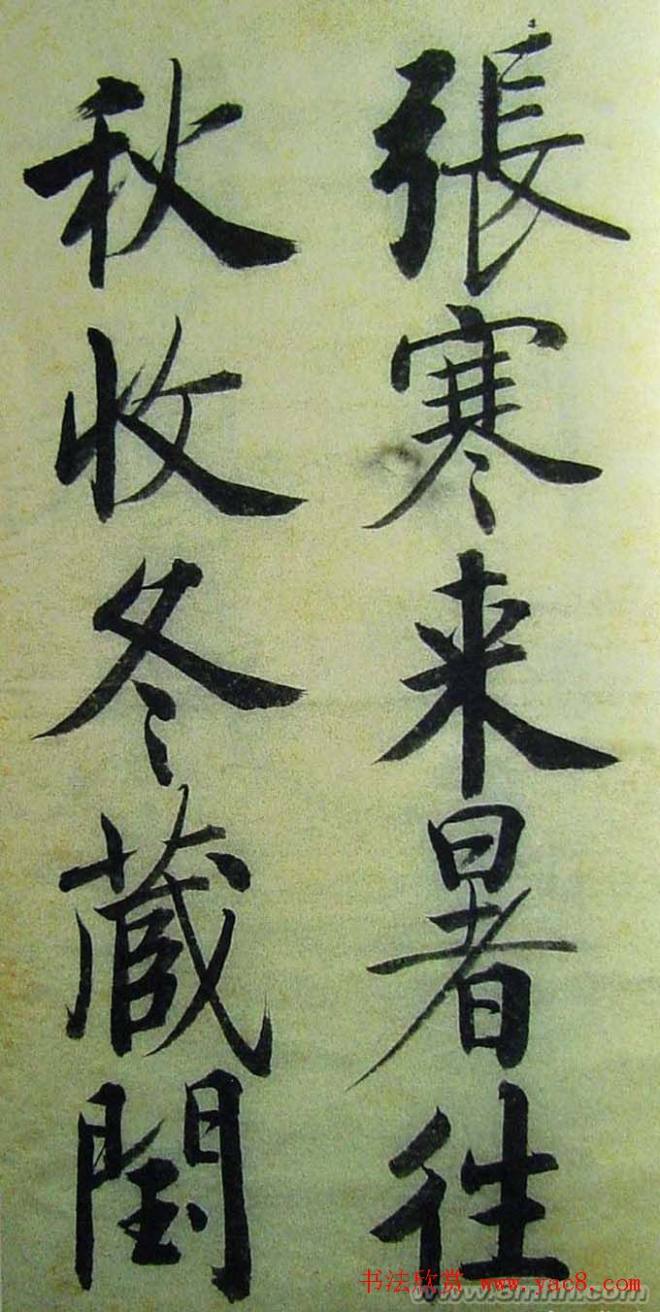 張寒来暑往
秋收冬蔵閏
书法欣赏 www.yac8.com